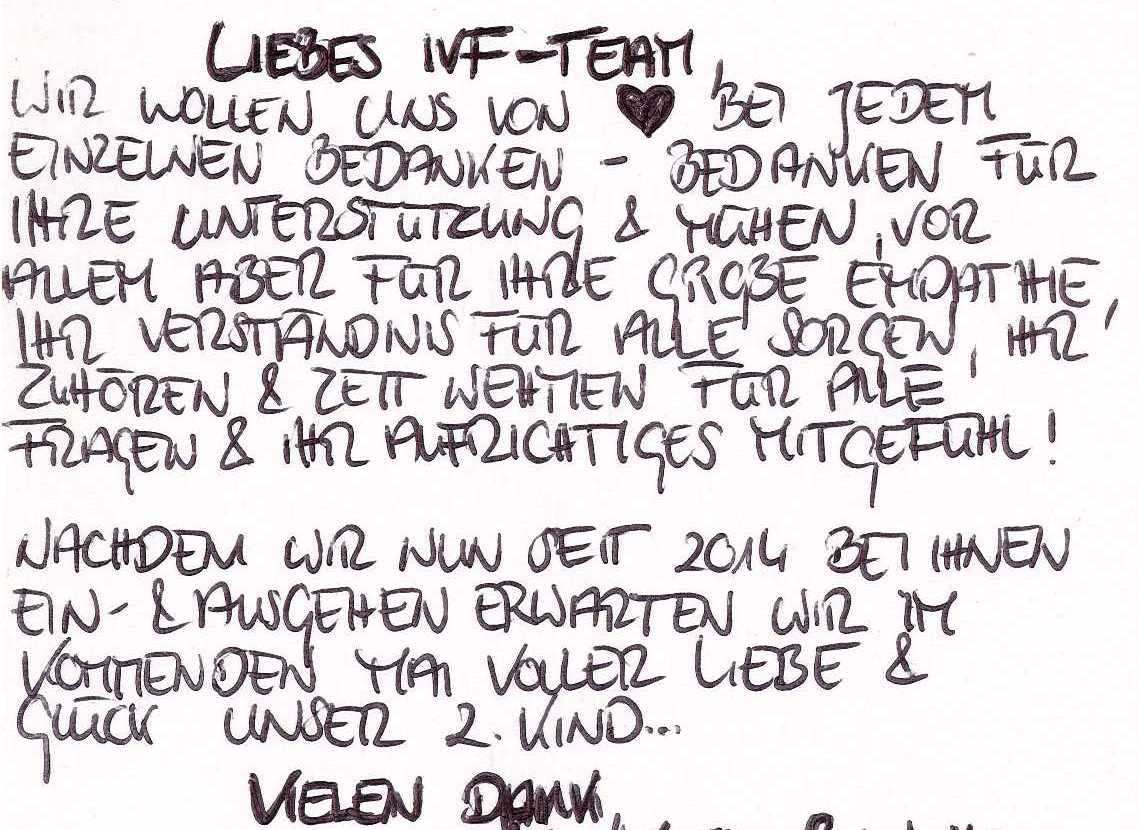 LIEBES IVF-TEAM,
WIR WOLLEN UNS VON ♥ BEI JEDEM
EINZELNEN BEDANKEN - BEDANKEN FÜR
IHRE UNTERSTÜTZUNG & MÜHEN, VOR
ALLEM ABER FÜR IHRE GROßE EMPATHIE,
IHR VERSTÄNDNIS FÜR ALLE SORGEN, IHR
ZUHÖREN & ZEIT NEHMEN FÜR ALLE
FRAGEN & IHR AUFRICHTIGES MITGEFÜHL!
NACHDEM WIR NUN SEIT 2014 BEI IHNEN
EIN- & AUSGEHEN ERWARTEN WIR IM
KOMMENDEN MAI VOLLER LIEBE &
GLÜCK UNSER 2. KIND...
VIELEN DANK